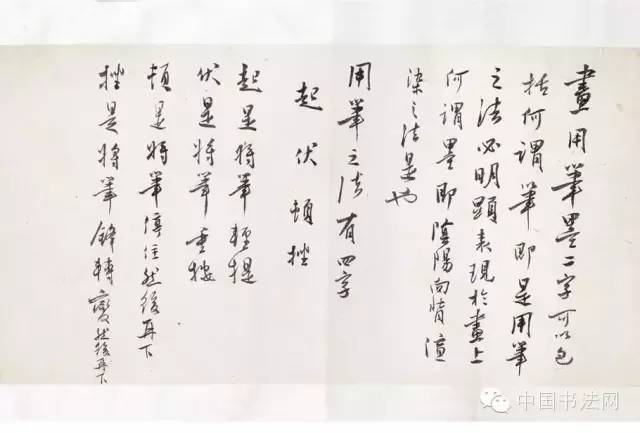 畫用筆墨二字可以包
括何謂筆即是用筆
之法必明顯表現於畫上
何謂墨即陰陽向背渲
染之法是也
用筆之法有四字
起伏頓挫
起是將筆輕提
伏是將筆重按
頓是將筆停住然後再下
挫是將筆鋒轉變然後再下
中国书法网